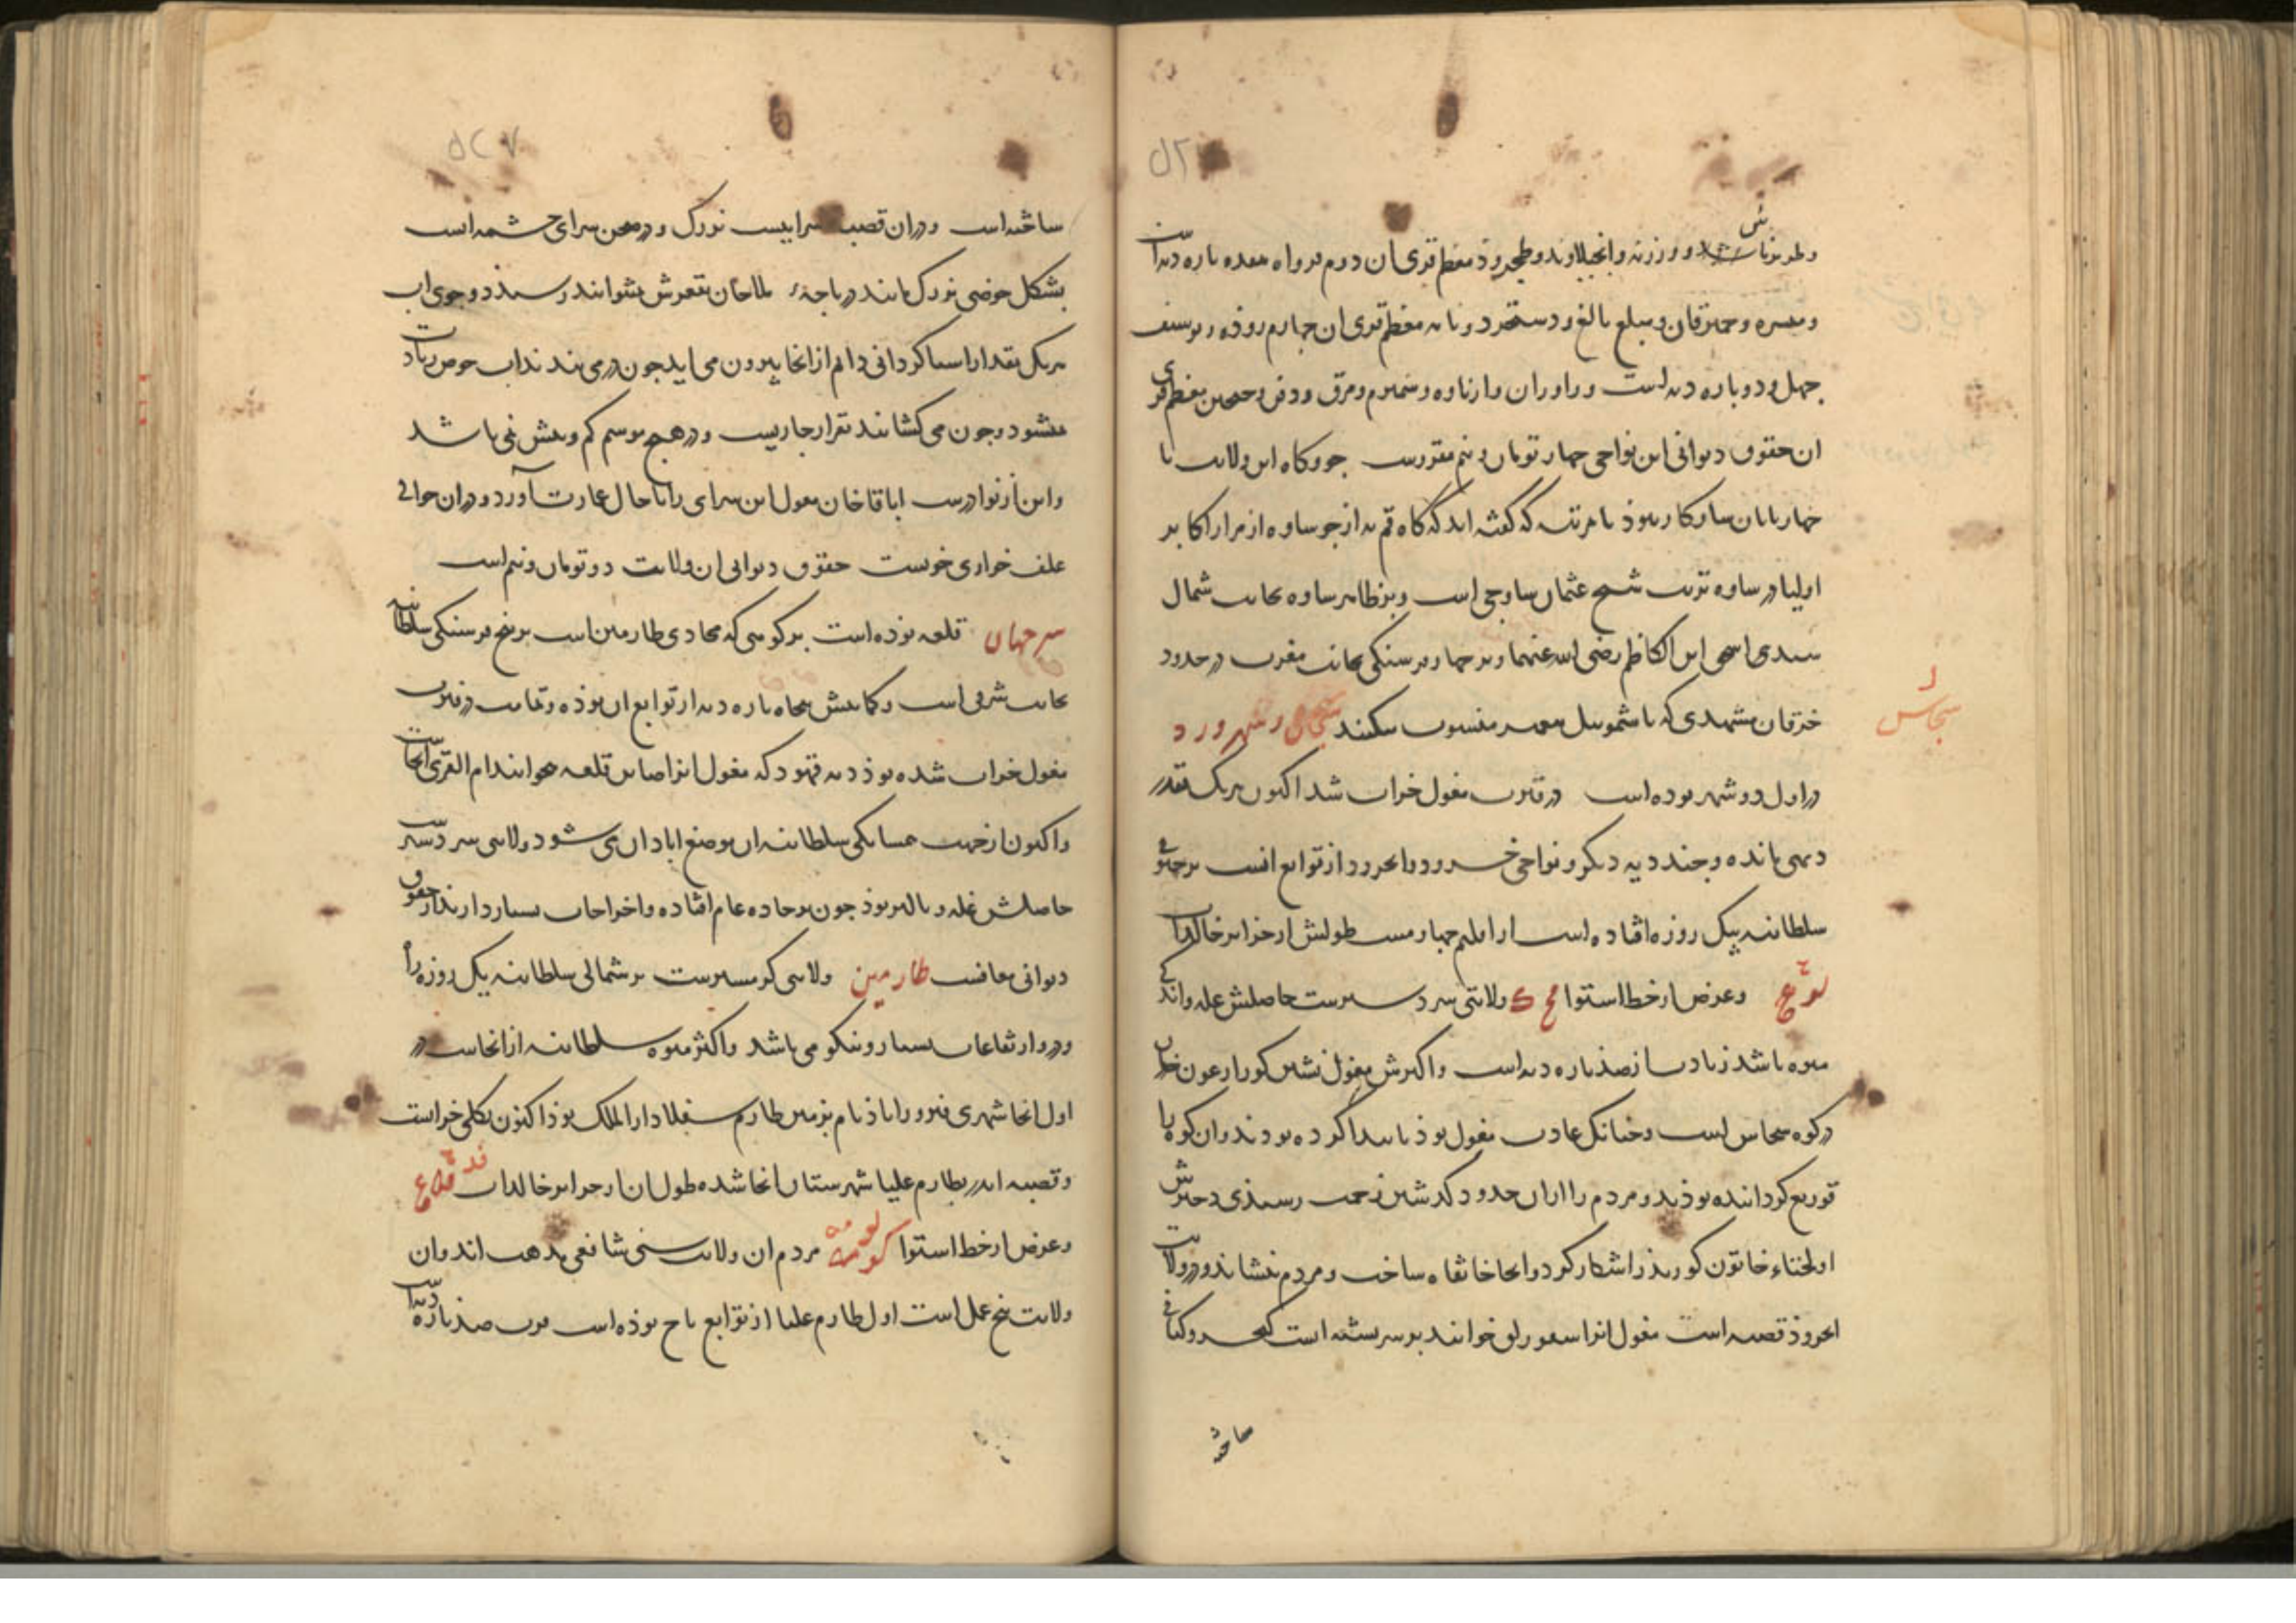 وطبرتاش وورزنه وانجیلاوند وطجرود معظم قری ان دوم مرواه معده باره دیه است
ومسره وحمزقان ومبلع بالغ ودستجرد ونابه معظم قری ان چهارم روذه ربوسنف
چهل ودو باره دیه است وراوران وازناوه وشمیرم ومرق ودفس وخمین معظم قری
ان حقوق دیوانی این نواحی چهار تومان ونیم مقررست جو وکاه این ولایت با
چهاربایان سازکار نبوذ بامرتبه که کفته اند که کاه قم به از جو ساوه از مزار اکابر
اولیا در ساوه تربت شیخ عثمان ساوجی است وبر ظاهر ساوه بجانب شمال
سیدی اسحق ابن الکاظم رضی الله عنهما وبر چهار فرسنکی بجانب مغرب در حدود
خرقان مشهدی که باشموییل بیغمبر منسوب میکنند سجاس وسهرورد
سجاس
در اول دو شهر بوده است در فترت مغول خراب شد اکنون هر یک بقدر
دیهی مانده وچند دیه دیکر ونواحی خسرود وانجرود از توابع انست بر جنوبی
سلطانیه بیک روزه افتاده است از اقلیم چهارمست طولش از جزایر خالدات
وعرض از خط استوا ولایتی سردسیرست حاصلش غله واندکی
میوه باشد زیادت از صذ باره دیه است واکثرش مغول نشین کور ارغون خان
در کوه سجاس است وچنانک عادت مغول بوذ نابیدا کرده بودند وان کوه را
قوریغ کردانده بوذند ومردم را از ان حدود کذشتن زحمت رسیذی دخترش
اولجتای خاتون کور بذر اشکار کرد وانجا خانقاه ساخت ومردم بنشاند ودر ولایت
انجروذ قصبه است مغول انرا سغورلق خوانند بر سر بشته است کیخسرو کیانی
ساخته
ساخته است ودران قصبه سراییست بزرک ودر صحن سرای چشمه است
بشکل حوضی بزرک مانند دریاچهٔ ملاحان بقعرش نتوانند رسیذ دو جوی اب
هریک بمقدار اسیا کردانی دایم از انجا بیرون می اید چون در می بندند اب حوض زیادت
نمیشود وچون می کشایند بقرار جاریست ودر هیچ موسم کم وبیش نمی باشد
واین از نوادرست اباقاخان مغول این سرای را باحال عمارت آورد ودران حوالی
علف خواری خوبست حقوق دیوانی ان ولایت دو تومان ونیم است
سرجهان قلعه بوذه است بر کوهی که محاذی طارمین است بر بنج فرسنکی سلطانیه
بجانب شرقی است وکمابیش بنجاه باره دیه از توابع ان بوذه وتمامت در فترت
مغول خراب شده بوذ دیه قهود که مغول انرا صاین قلعه خوانند ام القری انجاست
واکنون از جهت همسایکی سلطانیه ان موضع ابادان می شود ولایتی سردسیرست
حاصلش غله وبالیز بوذ چون بر جاده عام افتاده واخراجات بسیار دارند از حقوق
دیوانی معافست طارمین ولایتی کرمسیرست بر شمالی سلطانیه بیک روزه راه
ودرو ارتفاعات بسیار ونیکو می باشد واکثر میوه سلطانیه از انجاست در
اول انجا شهری فیروزاباذ نام بزمین طارم سفلا دارالملک بوذ اکنون بکلی خرابست
وقصبه اندر بطارم علیا شهرستان انجا شده طول ان از جزایر خالدات
وعرض از خط استوا مردم ان ولایت سنی شافعی مذهب اند وان
ولایت بنج عمل است اول طارم علیا از توابع باح بوذه است قرب صذ باره دیه است